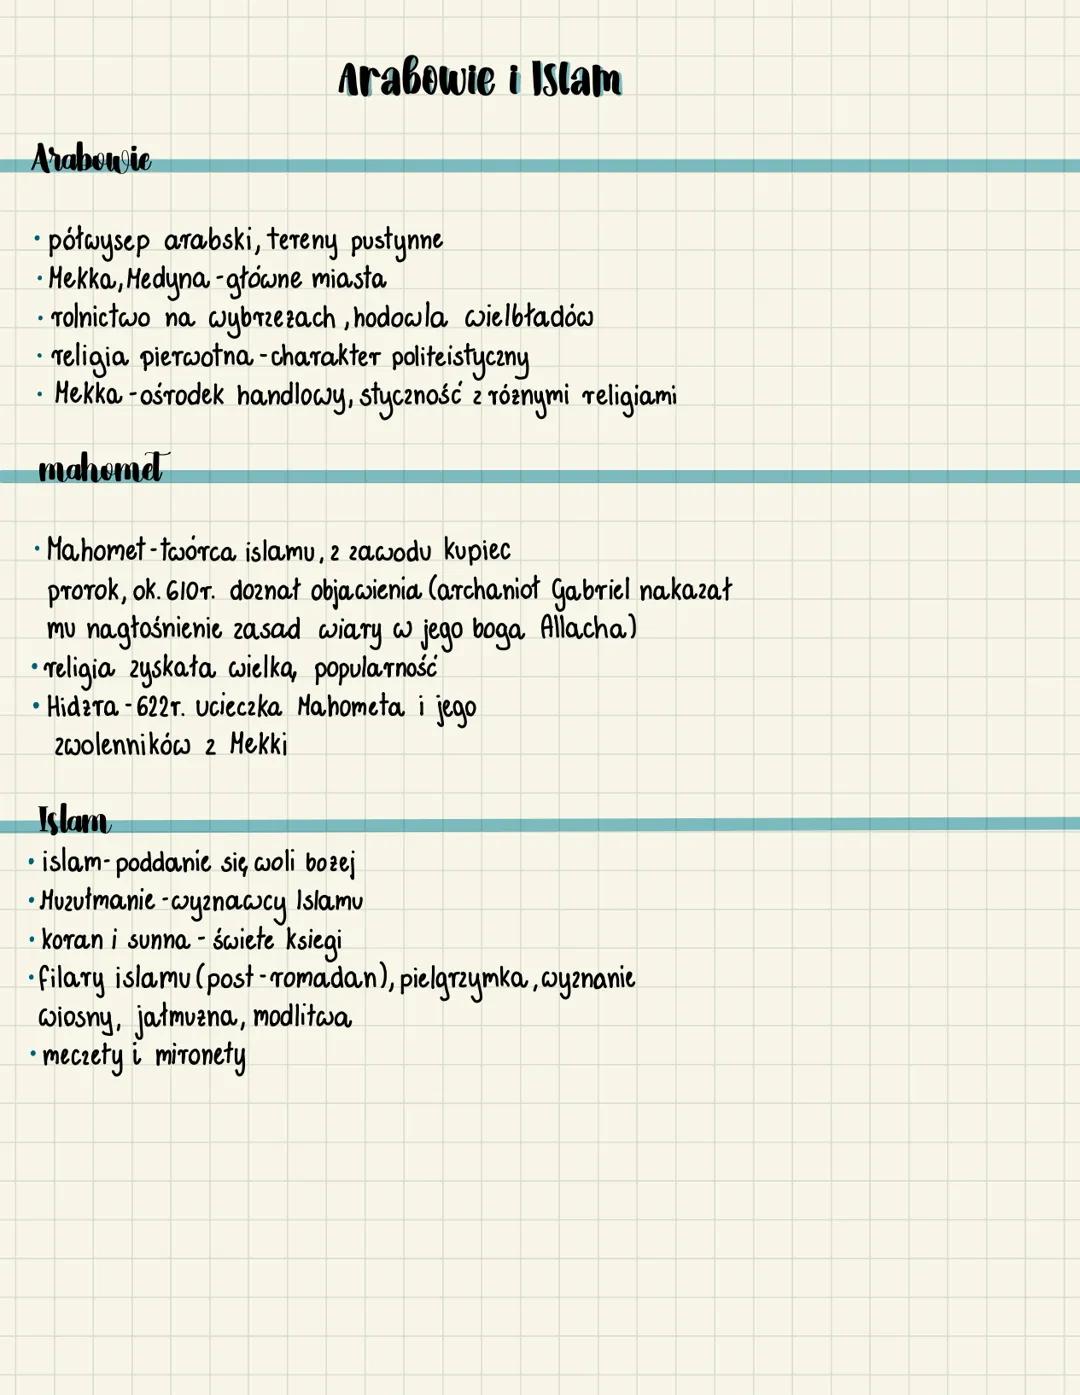 Arabowie i Islam
Arabowie
· półwysep arabski, tereny pustynne
· Mekka, Medyna - główne miasta
· rolnictwo na wybrzeżach, hodowla wielbładów
· religia pierwotna - charakter politeistyczny
· Mekka - ośrodek handlowy, styczność z różnymi religiami
mahomet
· Mahomet - twórca islamu, z zawodu kupiec
prorok, ok. 610r. doznał objawienia (archanioł Gabriel nakazał
mu nagłośnienie zasad wiary w jego boga Allacha)
· religia zyskała wielką popularność
· Hidżra - 622r. ucieczka Mahometa i jego
zwolenników z Mekki
Islam
· islam - poddanie się woli bożej
· Muzułmanie - wyznawcy Islamu
· koran i sunna - świete ksiegi
· filary islamu (post - romadan), pielgrzymka, wyznanie
wiosny, jałmużna, modlitwa
· meczety i mironety